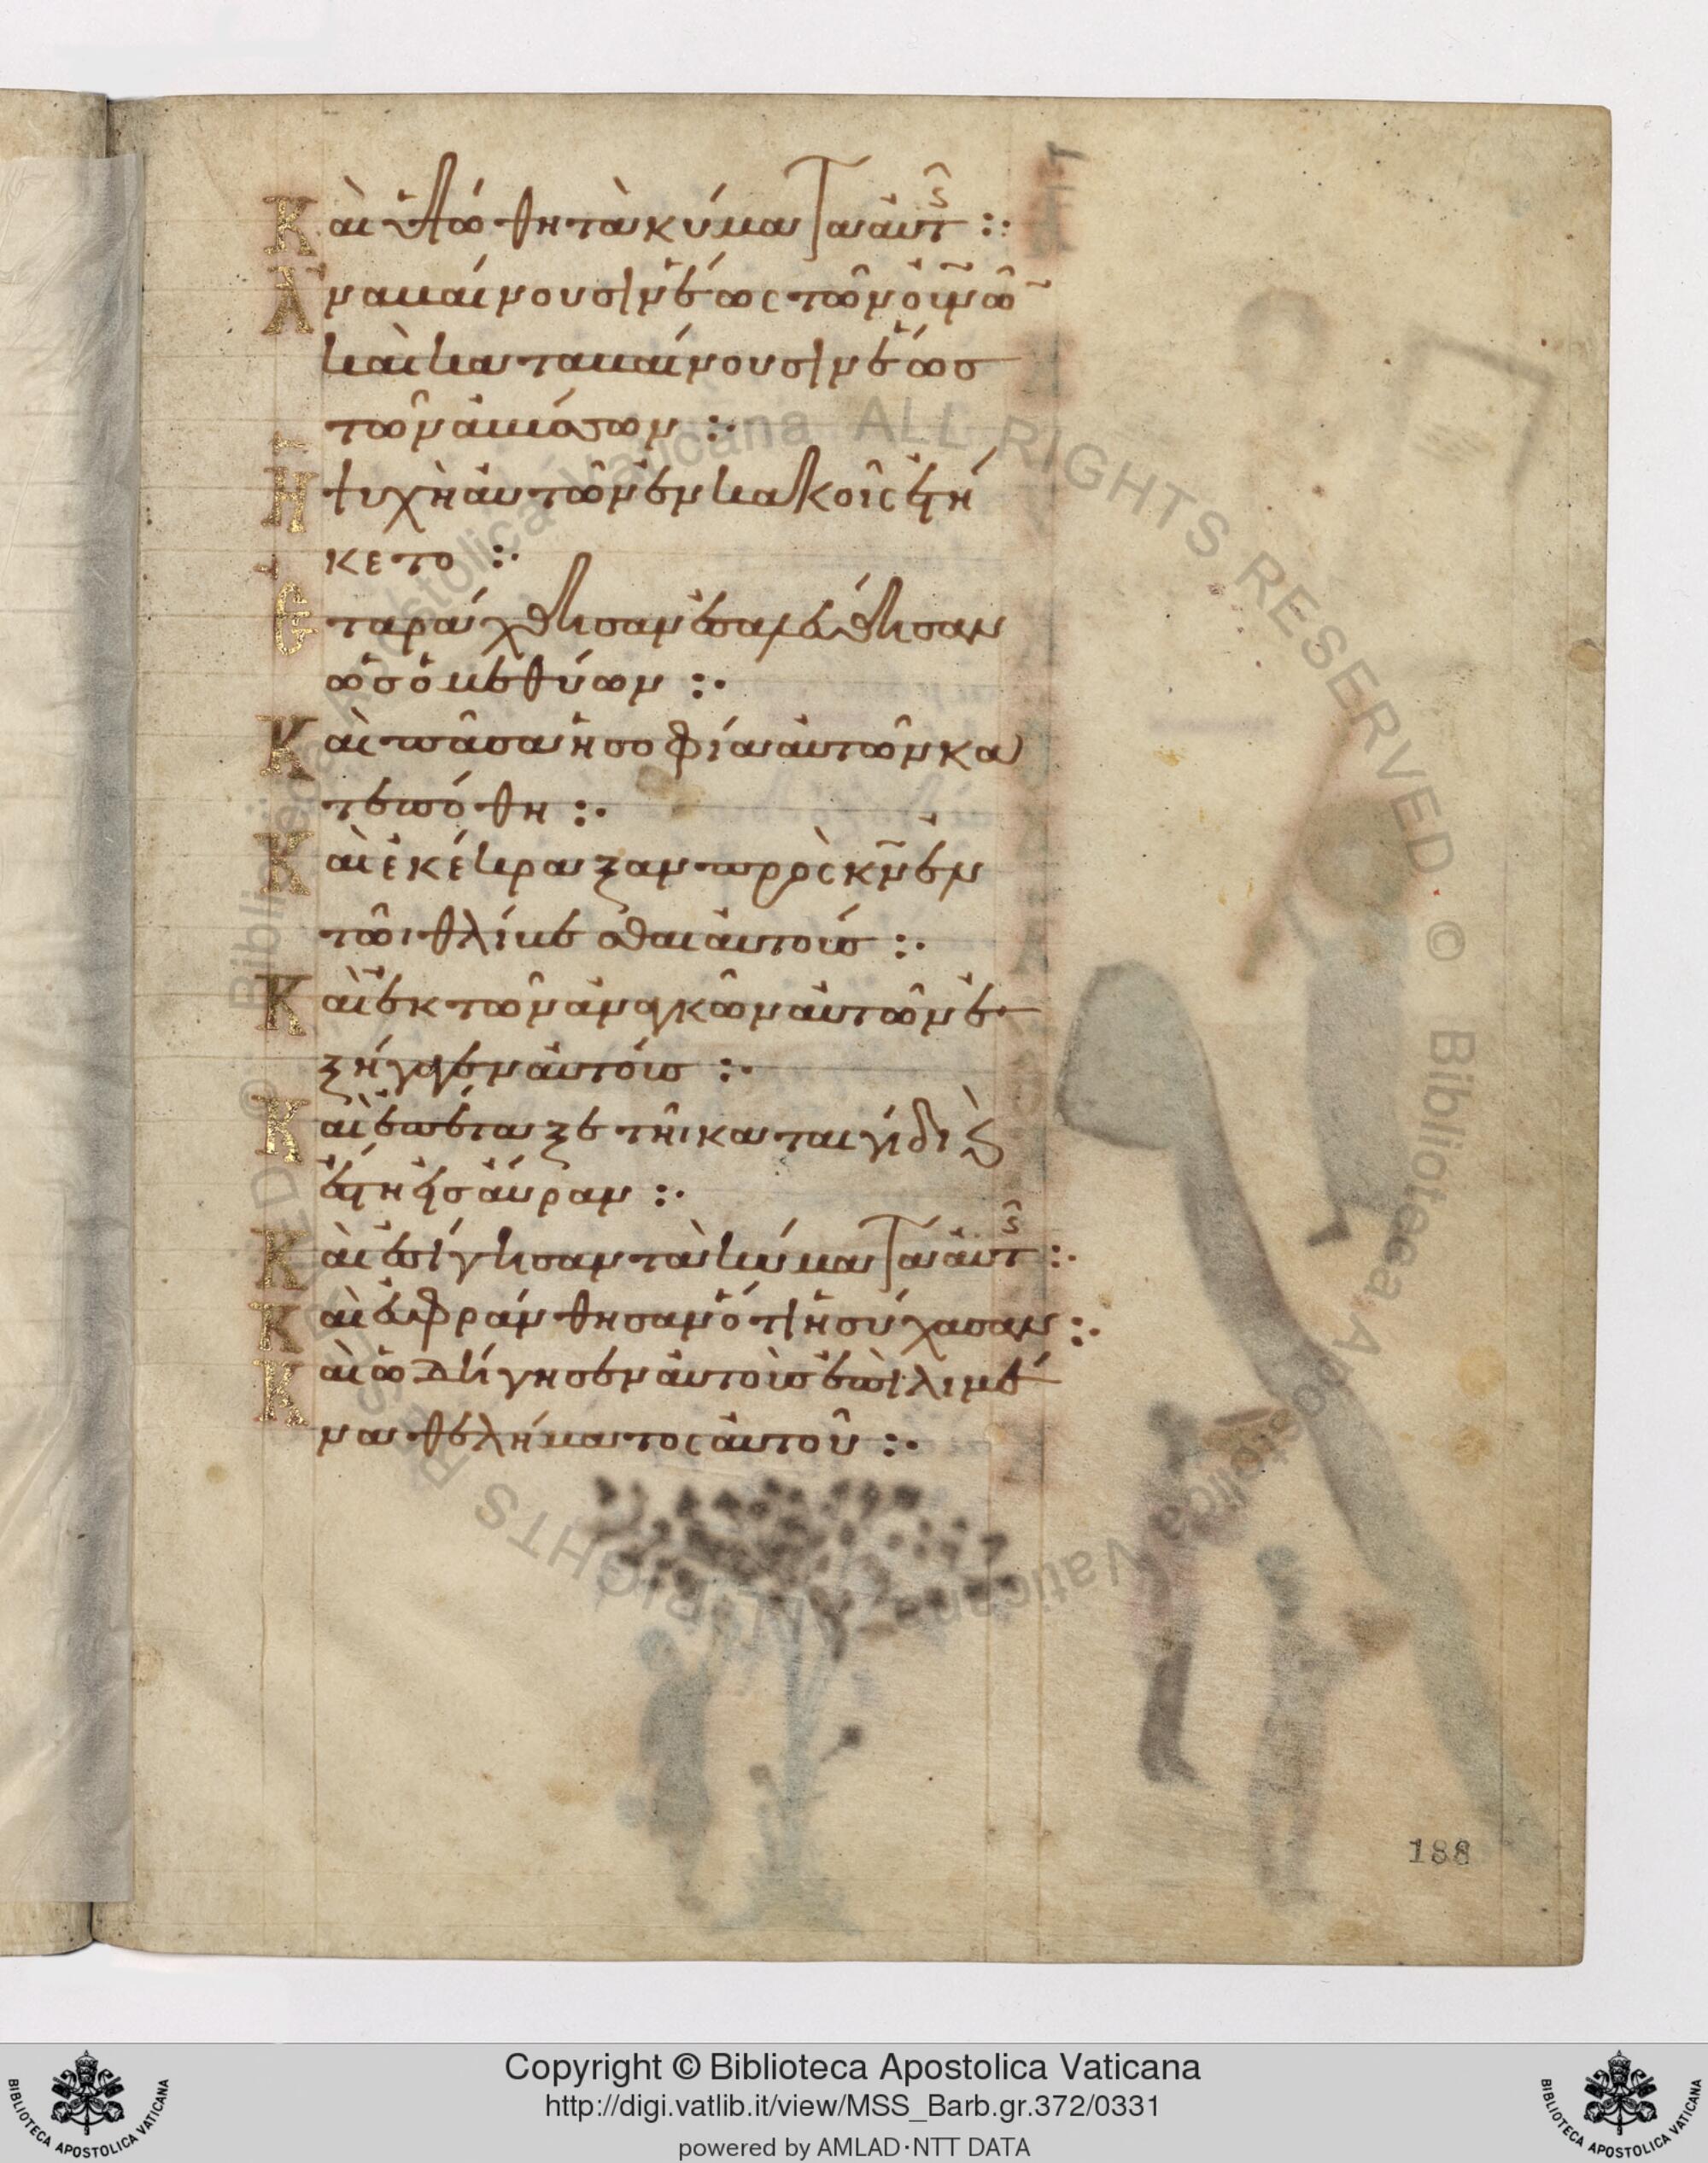 Καὶ ὑψώθη τὰ κύματα αὐτῆς :·
Ἀναβαίνουσιν ἕως τῶν οὐνῶν
καὶ καταβαίνουσιν ἕως
τῶν ἀβύσσων :·
Ἡ ψυχὴ αὐτῶν ἐν κακοῖς ἐτή
κετο :·
Ἐταράχθησαν ἐσαλεύθησαν
ὡς ὁ μεθύων :·
Καὶ πᾶσα ἡ σοφία αὐτῶν κα
τεπόθη :·
Καὶ ἐκέκραξαν πρὸς κν ἐν
τῶι θλίβεσθαι αὐτούς :·
Καὶ ἐκ τῶν ἀναγκῶν αὐτῶν ἐ
ξήγαγεν αὐτούς :·
Καὶ ἐπέταξε τῆι καταιγίδι ϗ
ἔστη εἰς αὔραν :·
Καὶ ἐσίγησαν τὰ κύματα αὐτῆς :·
Καὶ εὐφράνθησαν ὅτι ἡσύχασαν :·
Καὶ ὡδήγησεν αὐτοὺς ἐπὶ λιμέ
να θελήματος αὐτοῦ :·
188
Copyright © Biblioteca Apostolica Vaticana
http://digi.vatlib.it/view/MSS_Barb.gr.372/0331
powered by AMLAD·NTT DATA
BIBLIOTECA APOSTOLICA VATICANA
BIBLIOTECA APOSTOLICA VATICANA
© Biblioteca Apostolica Vaticana ALL RIGHTS RESERVED · © Biblioteca Apostolica Vaticana ALL RIGHTS RESERVED